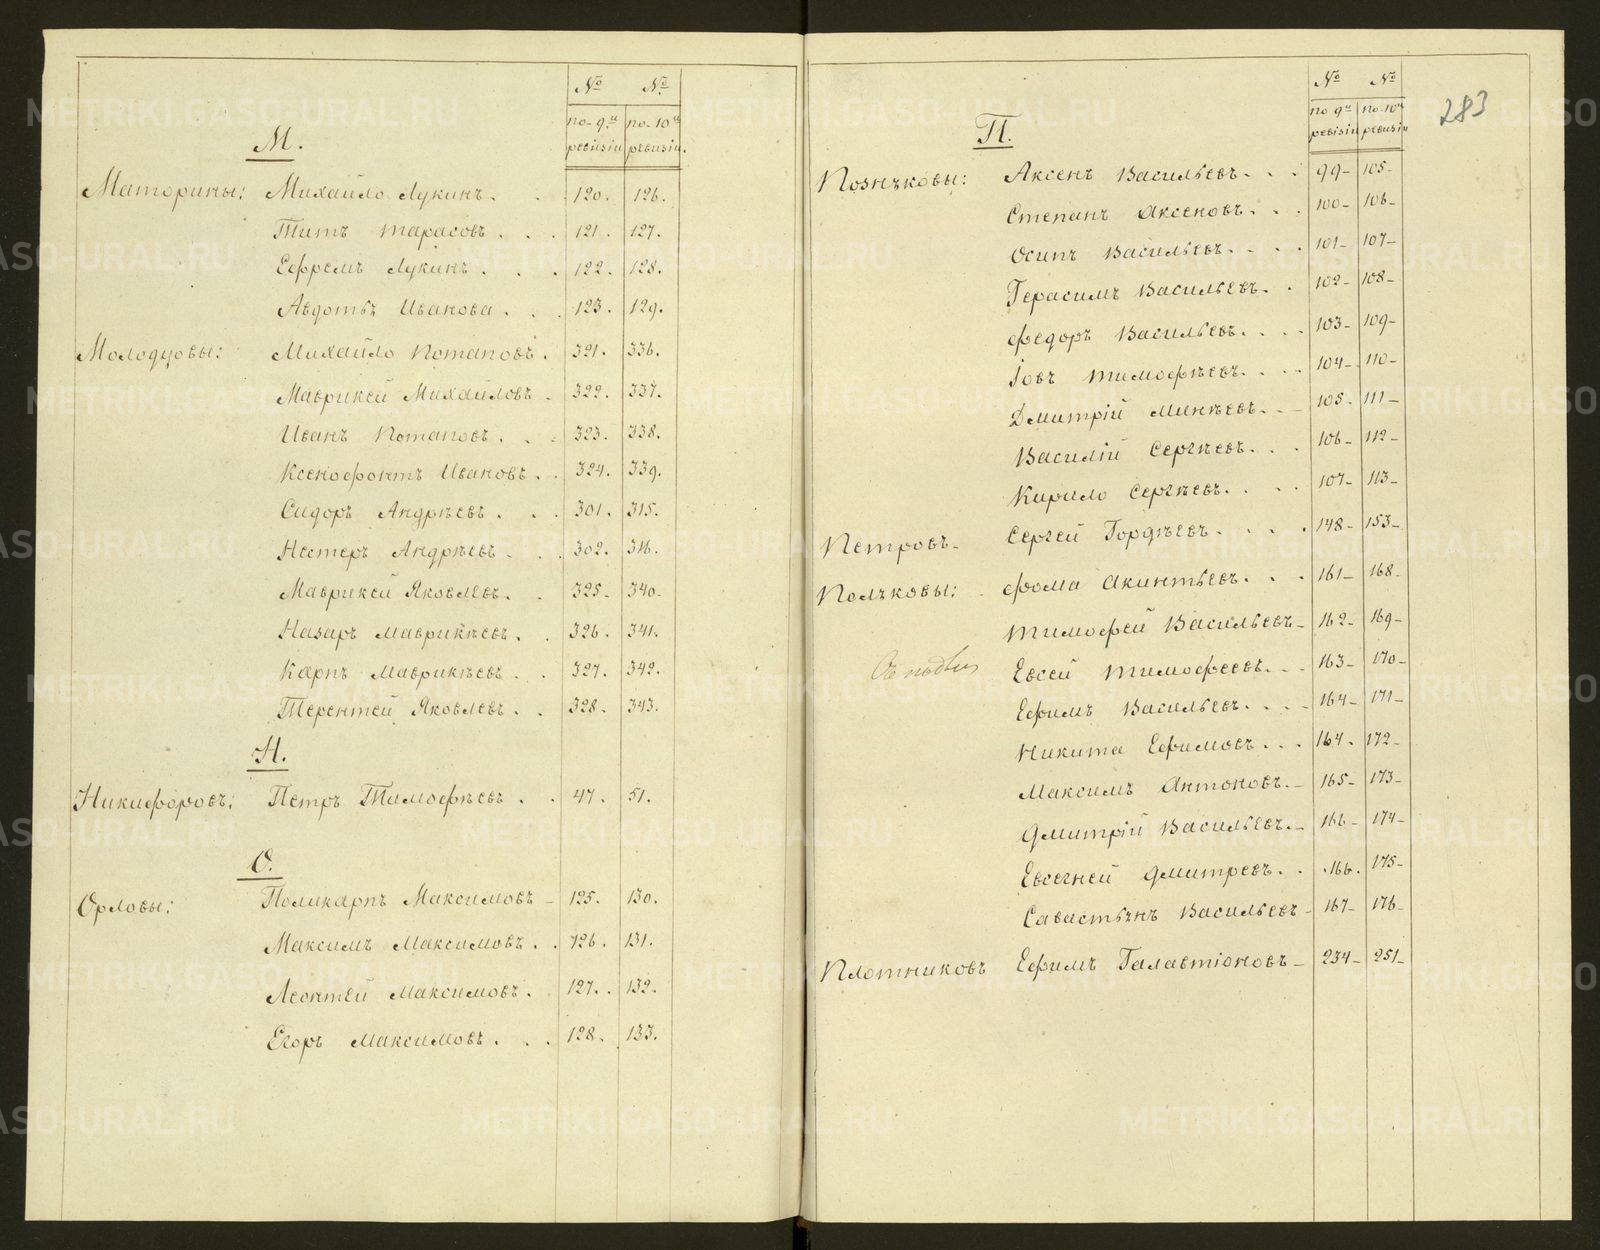 № №
по 9й по 10й
ревизіи ревизіи.
М.
Маторины: Михайло Лукинъ. . . 120. 126.
Титъ Тарасовъ . . . 121. 127.
Ефремъ Лукинъ . . . 122. 128.
Авдотья Иванова . . . 123. 129.
Молодцовы: Михайло Потаповъ. 321. 336.
Маврикей Михайловъ . 322. 337.
Иванъ Потаповъ. . . 323. 338.
Ксенофонтъ Ивановъ . . 324. 339.
Сидоръ Андрѣевъ . . . 301. 315.
Нестеръ Андрѣевъ . . . 302. 316.
Маврикей Яковлевъ. . 325. 340.
Назаръ Маврикѣевъ. . 326. 341.
Карпъ Маврикѣевъ . . 327. 342.
Терентей Яковлевъ . . 328. 343.
Н.
Никифоровъ: Петръ Тимофѣевъ . . 47. 51.
О.
Орловы: Поликарпъ Максимовъ – 125. 130.
Максимъ Максимовъ. . 126. 131.
Леонтей Максимовъ. 127. . 132.
Егоръ Максимовъ. . . 128. 133.
283
№ №
по 9й по 10й
ревизіи ревизіи
П.
Позняковы: Аксенъ Васильевъ. . . 99– 105–
Степанъ Аксеновъ. . . 100– 106–
Осипъ Васильевъ. . . . 101– 107–
Герасимъ Васильевъ. . 102– 108–
Федоръ Васильевъ. . . . 103– 109–
Іовъ Тимофѣевъ. . . . 104– 110–
Дмитрій Минѣевъ. . – 105– 111–
Василій Сергѣевъ. . . 106– 112–
Кирило Сергѣевъ. . . . 107– 113–
Петровъ– Сергей Гордѣевъ. . . . 148– 153–
Поляковы: Фома Акинтьевъ. . . 161– 168–
Тимофей Васильевъ– 162– 169–
Евсей Тимофеевъ. . . 163– 170–
Ефимъ Васильевъ. . . . 164– 171–
Никита Ефимовъ. . . 164. 172–
Максимъ Антоновъ. – 165– 173–
Дмитрій Васильевъ.– 166– 174–
Евсегней Дмитревъ. . .166. 175–
Савастьянъ Васильевъ– 167– 176–
Плотниковъ Ефимъ Галактіоновъ– 234– 251–